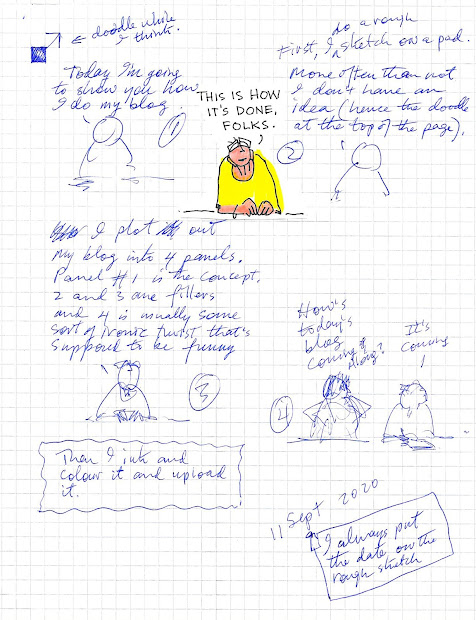 ← doodle while
I think.
Today I'm going
to show you how
I do my blog.
1
THIS IS HOW
IT'S DONE,
FOLKS.
do a rough
First, I ^ sketch on a pad.
More often than not
I don't have an
idea (hence the doodle
at the top of the page).
2
I plot it out
my blog into 4 panels.
Panel #1 is the concept,
2 and 3 are fillers
and 4 is usually some
sort of ironic twist that's
supposed to be funny
3
How's
today's
blog
coming along?
It's
coming
!
4
Then I ink and
colour it and upload
it.
11 Sept 2020
I always put
the date on the
rough sketch